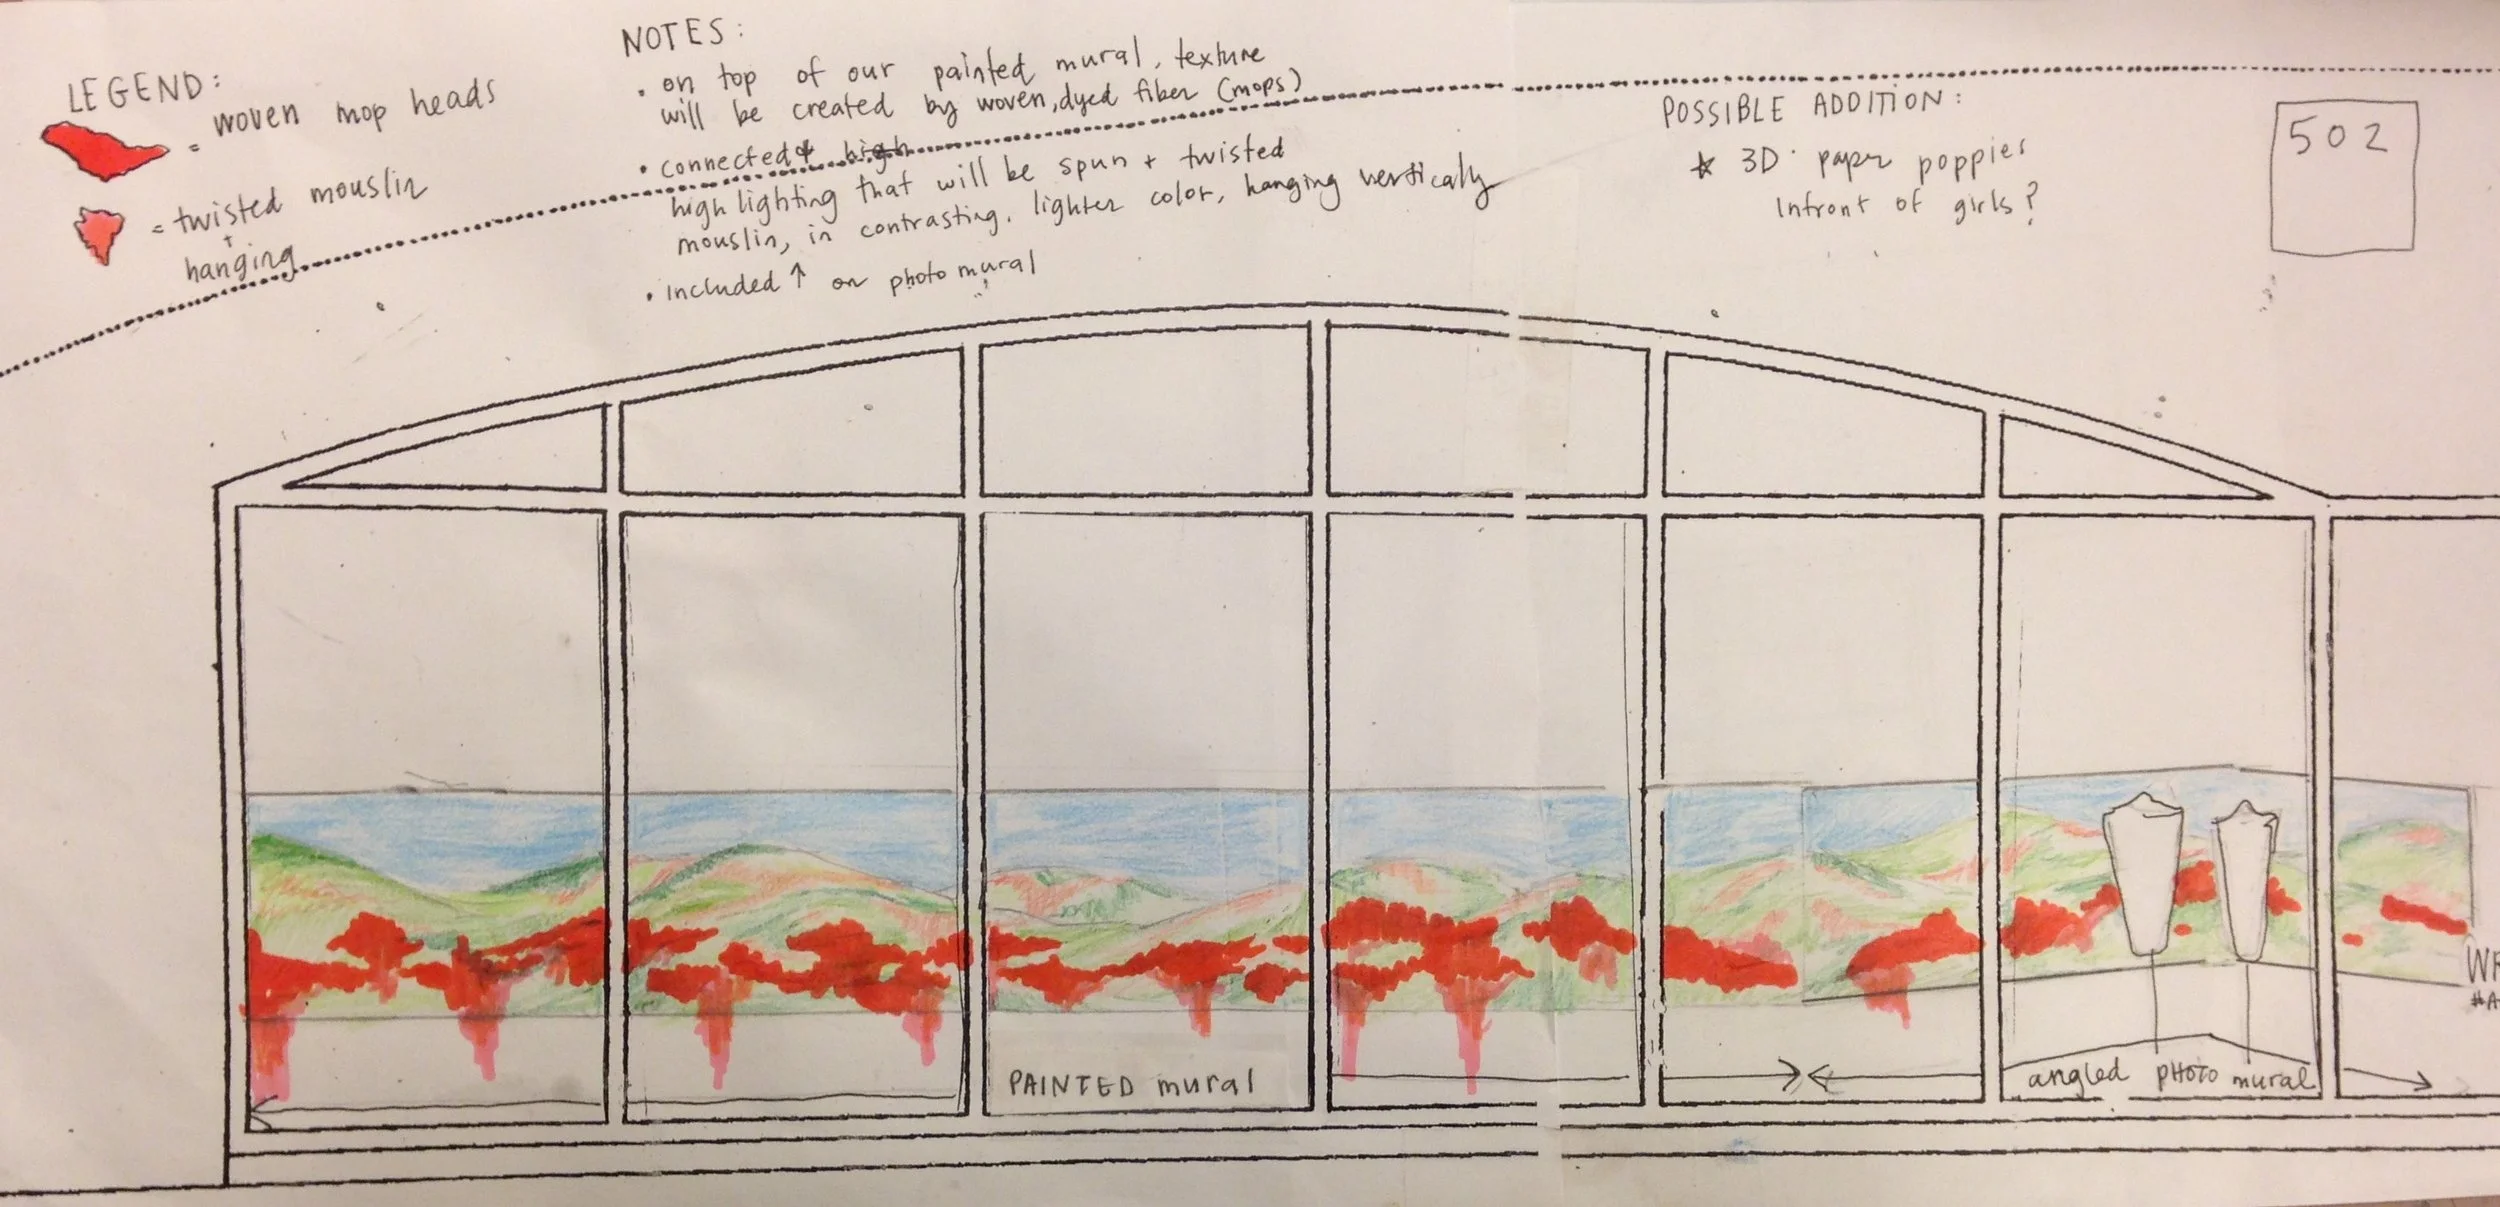 LEGEND:
= woven mop heads
= twisted mouslin
+
hanging
NOTES:
• on top of our painted mural, texture
will be created by woven, dyed fiber (mops)
• connected + high
high lighting that will be spun + twisted
mouslin, in contrasting, lighter color, hanging vertically
• included ↑ on photo mural
POSSIBLE ADDITION:
★ 3D paper poppies
infront of girls?
502
PAINTED mural
angled PHOTO mural
WR
#A